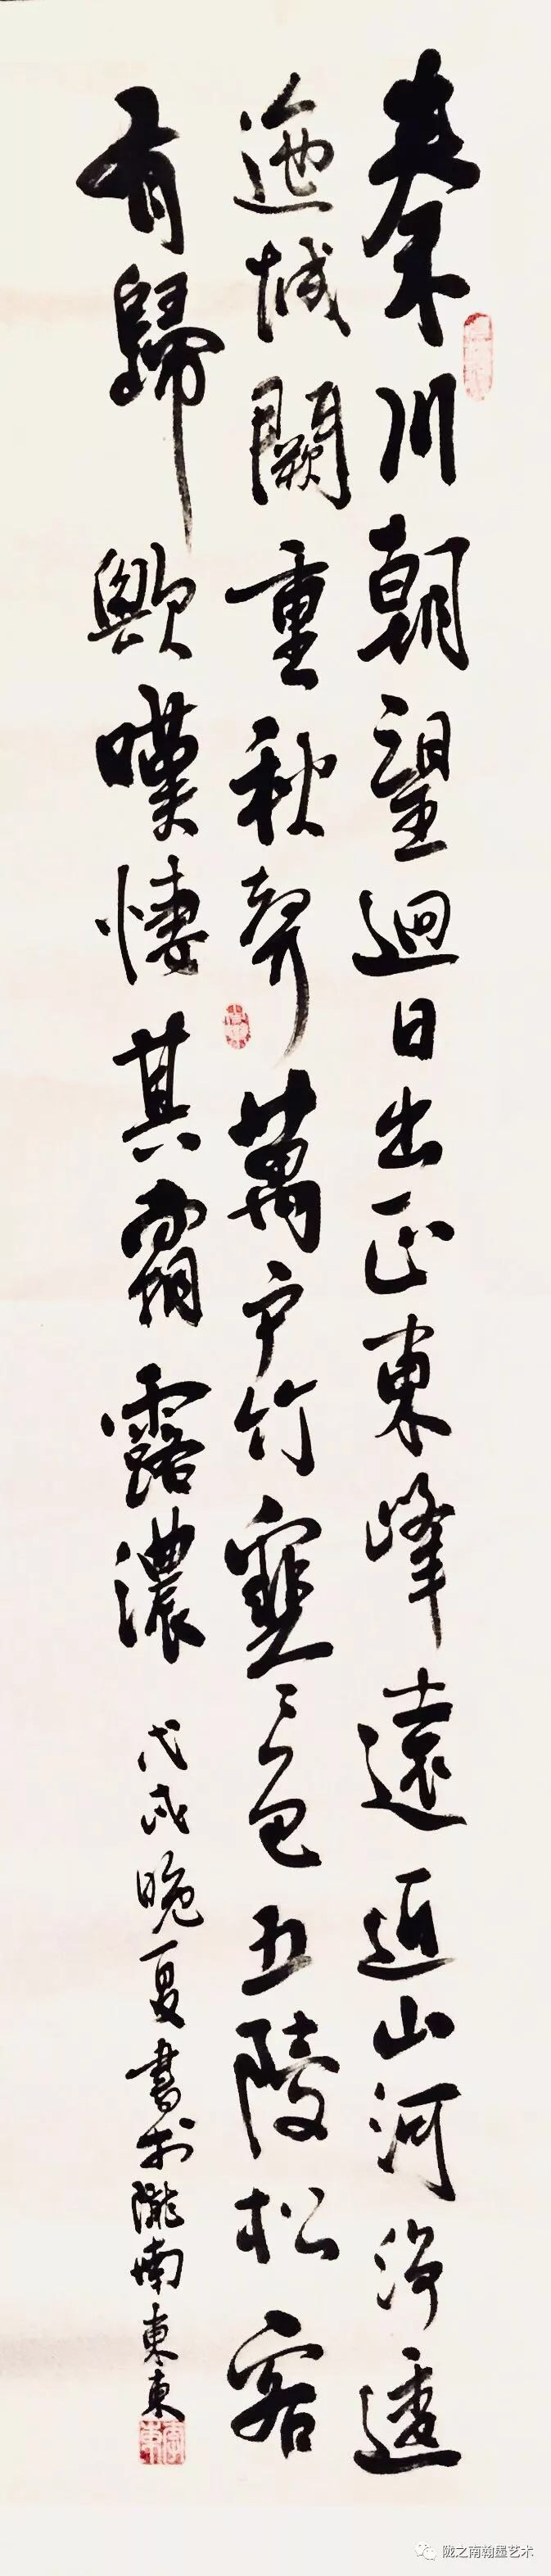 秦川朝望迴日出正東峰遠近山河淨逶
迤城闕重秋聲萬戶竹寒色五陵松客
有歸歟嘆悽其霜露濃
戊戌晚夏書於隴南東東
陇之南翰墨艺术